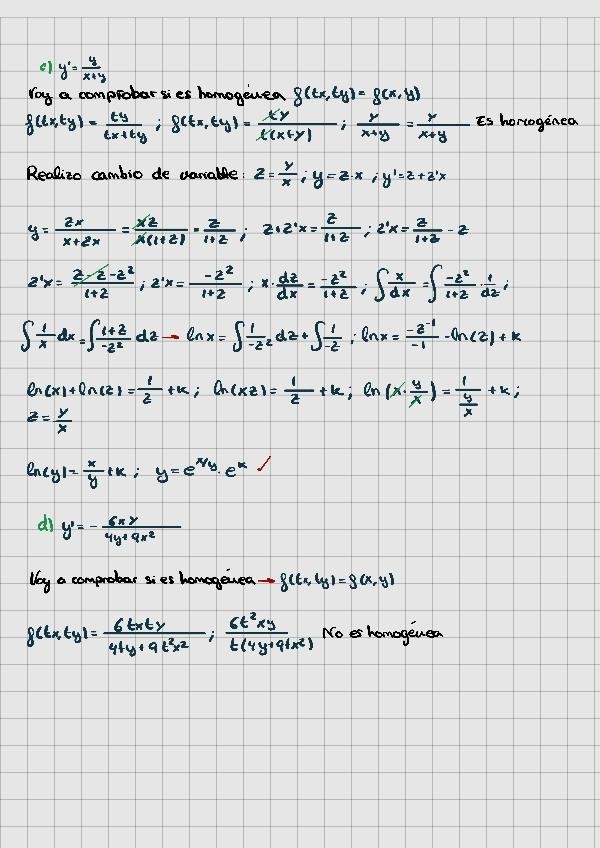 c) y' = y/(x+y)
Voy a comprobar si es homogénea f(tx,ty) = f(x,y)
f(tx,ty) = ty/(tx+ty) ; f(tx,ty) = ty/(t(x+y)) ; y/(x+y) = y/(x+y) Es homogénea
Realizo cambio de variable: z = y/x ; y = z·x ; y' = z + z'x
y = zx/(x+zx) = xz/(x(1+z)) = z/(1+z) ; z+z'x = z/(1+z) ; z'x = z/(1+z) - z
z'x = (z-z-z²)/(1+z) ; z'x = -z²/(1+z) ; x·dz/dx = -z²/(1+z) ; ∫ x/dx = ∫ -z²/(1+z) · 1/dz ;
∫ 1/x dx = ∫ (1+z)/-z² dz → ln x = ∫ 1/-z² dz + ∫ 1/-z ; ln x = -z⁻¹/-1 - ln(z) + k
ln(x) + ln(z) = 1/z + k ; ln(xz) = 1/z + k ; ln(x·y/x) = 1/(y/x) + k ;
z = y/x
ln(y) = x/y + k ; y = e^(x/y) · e^k ✓
d) y' = - 6xy/(4y+9x²)
Voy a comprobar si es homogénea → f(tx,ty) = f(x,y)
f(tx,ty) = 6txty/(4ty+9t²x²) ; 6t²xy/(t(4y+9tx²)) No es homogénea